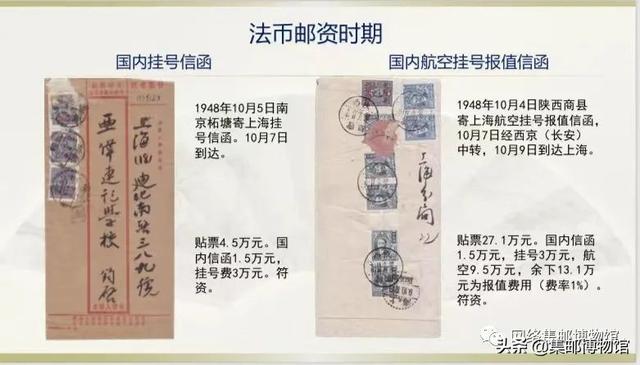 法币邮资时期
国内挂号信函
1948年10月5日南
京柘塘寄上海挂
号信函。10月7日
到达。
贴票4.5万元。国
内信函1.5万元，
挂号费3万元。符
资。
上海
三八九號
亚偉速記學校
国内航空挂号报值信函
1948年10月4日陕西商县
寄上海航空挂号报值信函，
10月7日经西京（长安）
中转，10月9日到达上海。
贴票27.1万元。国内信函
1.5万元，挂号3万元，航
空9.5万元，余下13.1万
元为报值费用（费率1%）。
符资。
上海
网络集邮博物馆
头条@集邮博物馆